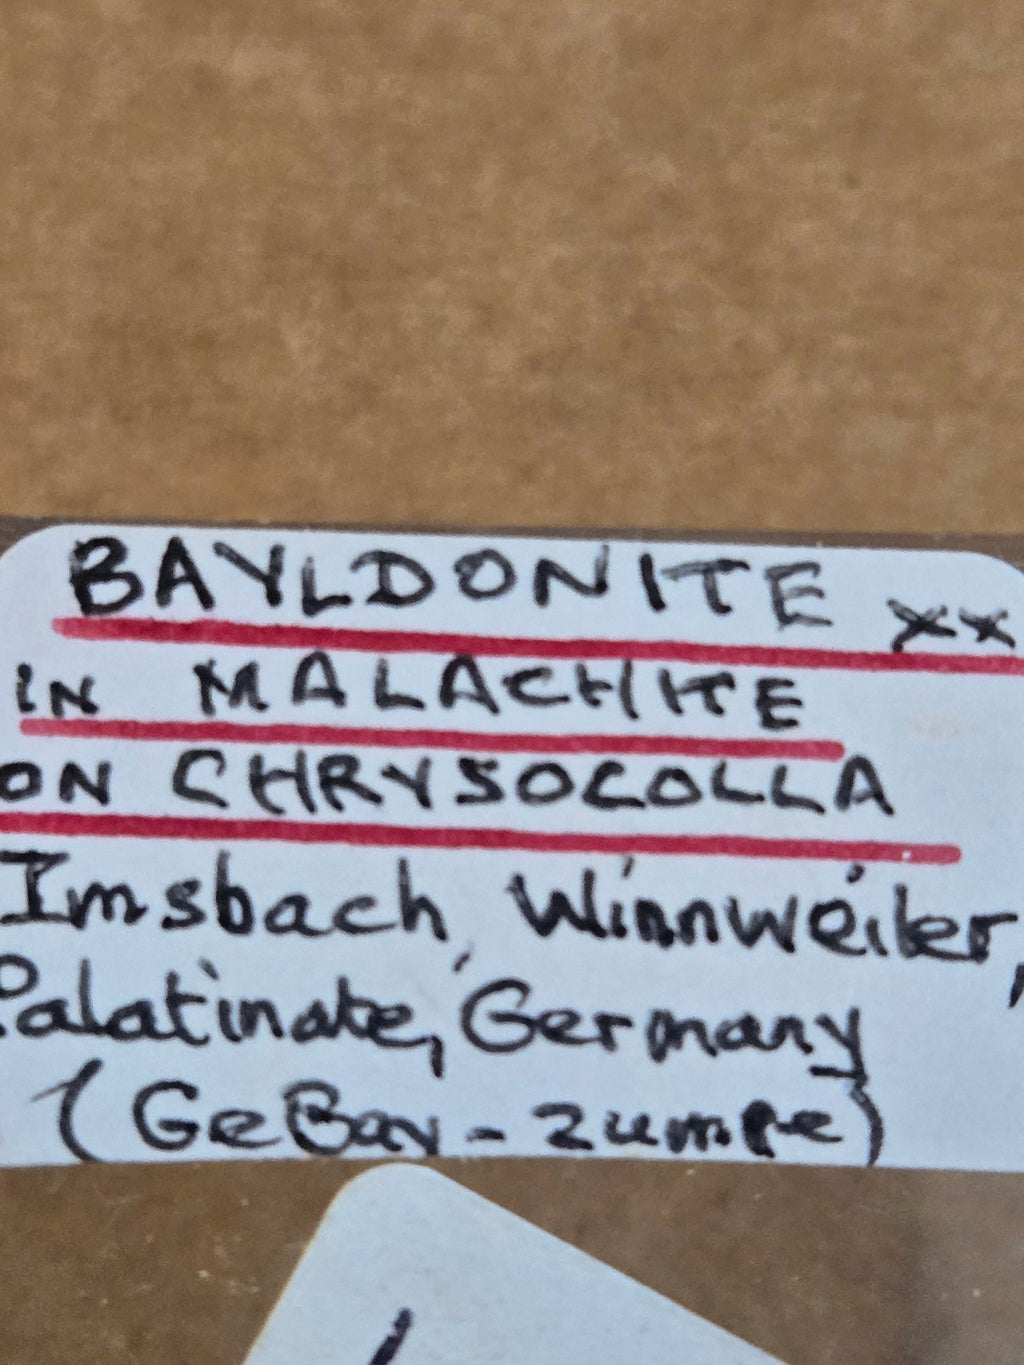 BAYLDONITE xx
IN MALACHITE
ON CHRYSOCOLLA
Imsbach, Winnweiler,
Palatinate, Germany
(GeBay - Zumpe)